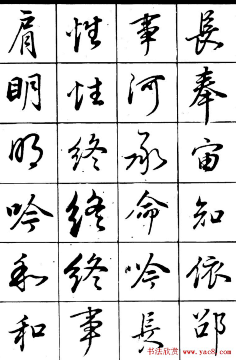 長奉宙知依邵
事河承命吟長
性性終終終事
肩明明吟和和
书法欣赏
www.yac8.com